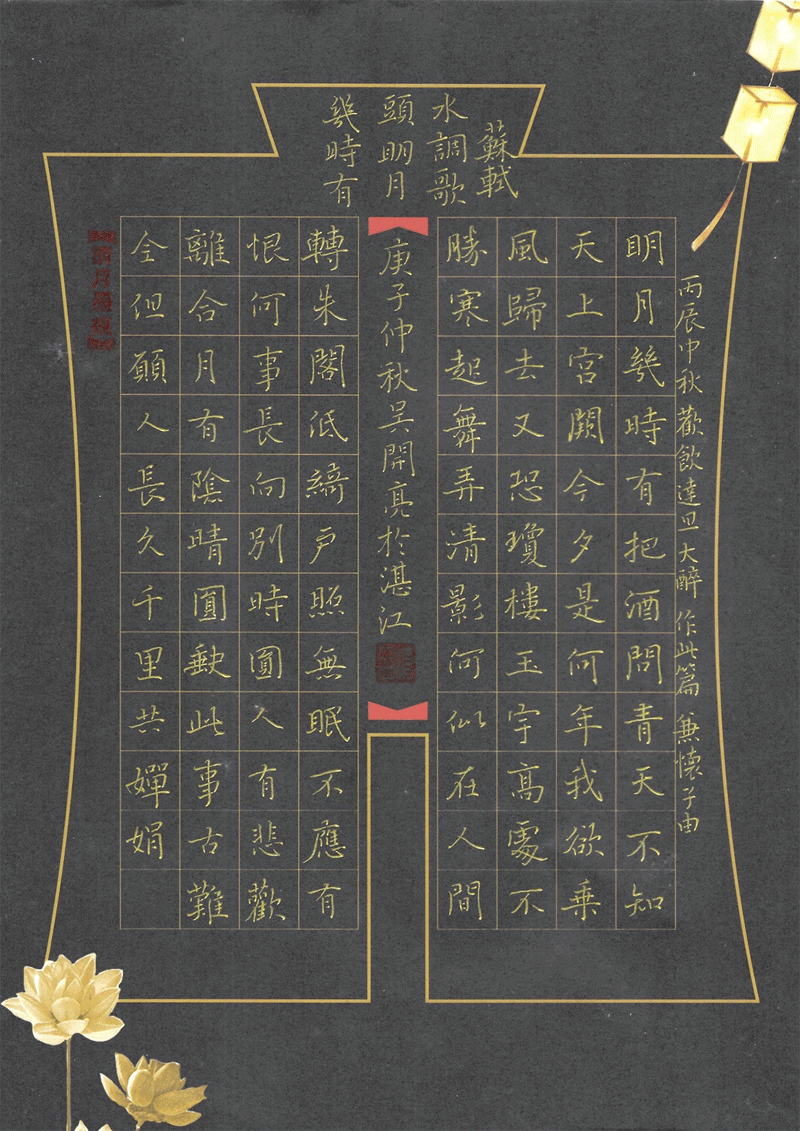 蘇軾
水調歌
頭明月
幾時有
丙辰中秋歡飲達旦大醉作此篇兼懷子由
明月幾時有把酒問青天不知
天上宮闕今夕是何年我欲乗
風歸去又恐瓊樓玉宇高處不
勝寒起舞弄清影何似在人間
庚子仲秋吳開亮於湛江
轉朱閣低綺戶照無眠不應有
恨何事長向別時圓人有悲歡
離合月有陰晴圓缺此事古難
全但願人長久千里共嬋娟